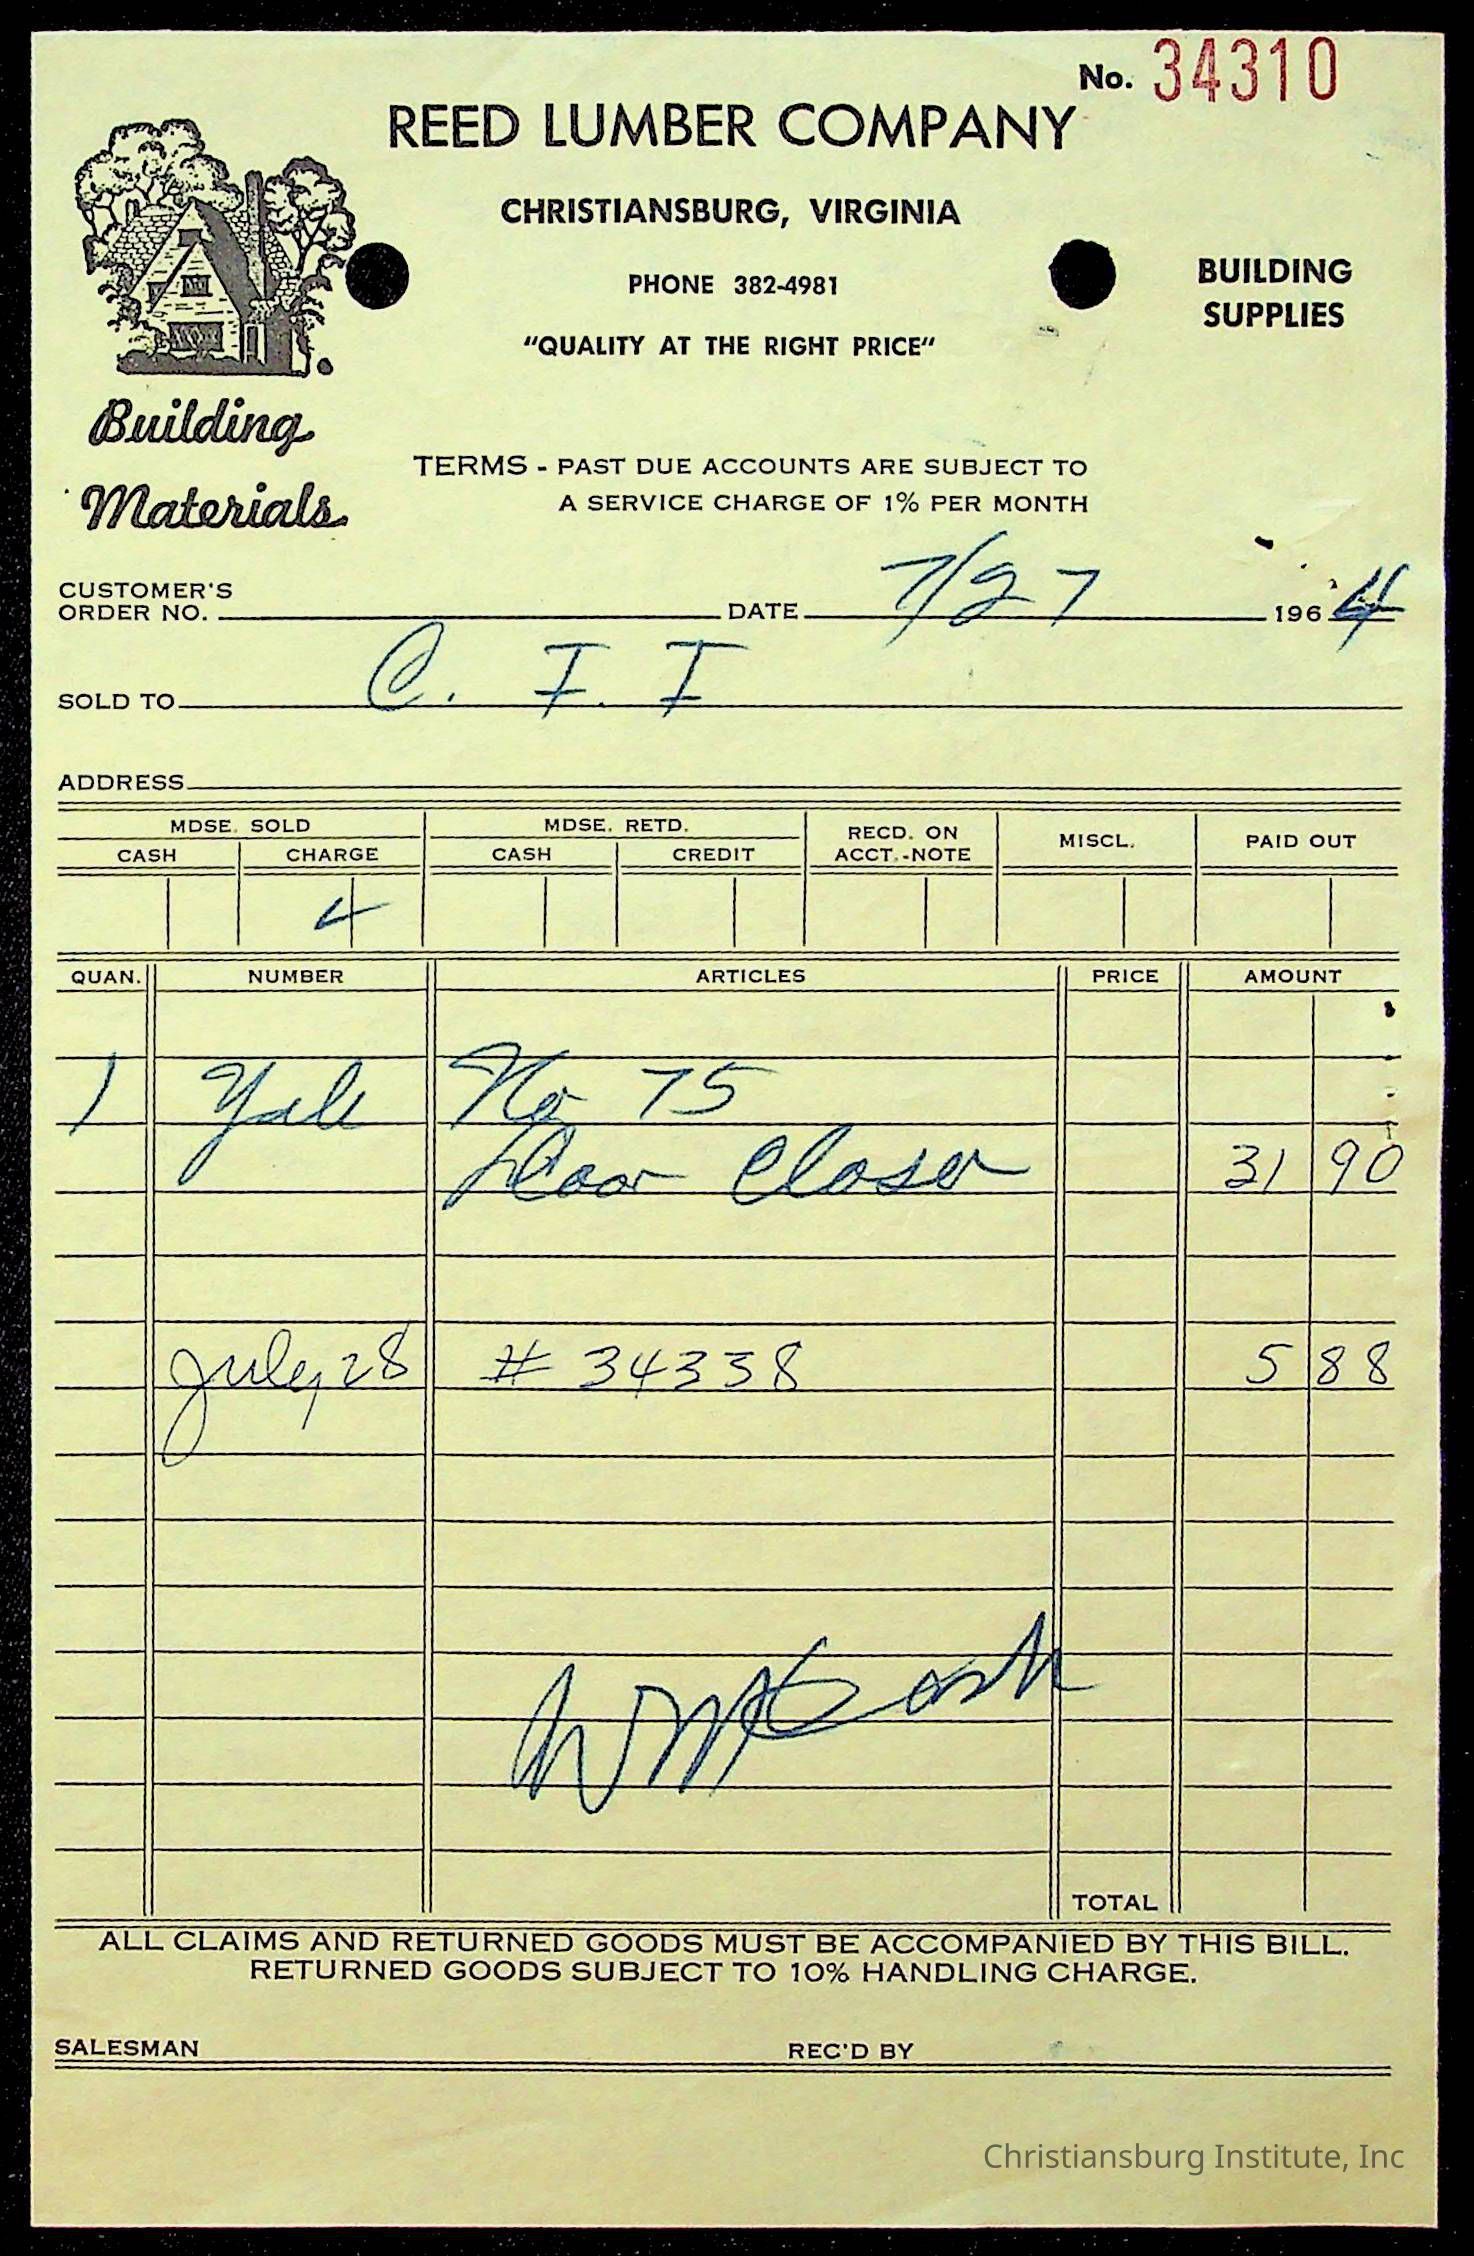 No. 34310
REED LUMBER COMPANY
CHRISTIANSBURG, VIRGINIA
PHONE 382-4981
"QUALITY AT THE RIGHT PRICE"
BUILDING
SUPPLIES
Building
Materials
TERMS - PAST DUE ACCOUNTS ARE SUBJECT TO
A SERVICE CHARGE OF 1% PER MONTH
CUSTOMER'S
ORDER NO. DATE 7/27 1964
SOLD TO C. I. I
ADDRESS
MDSE. SOLD MDSE. RETD. RECD. ON ACCT.-NOTE MISCL. PAID OUT
CASH CHARGE CASH CREDIT
QUAN. NUMBER ARTICLES PRICE AMOUNT
1 Yale No 75
Door Closer 31 90
July 28 # 34338 5 88
TOTAL
ALL CLAIMS AND RETURNED GOODS MUST BE ACCOMPANIED BY THIS BILL.
RETURNED GOODS SUBJECT TO 10% HANDLING CHARGE.
SALESMAN REC'D BY
Christiansburg Institute, Inc